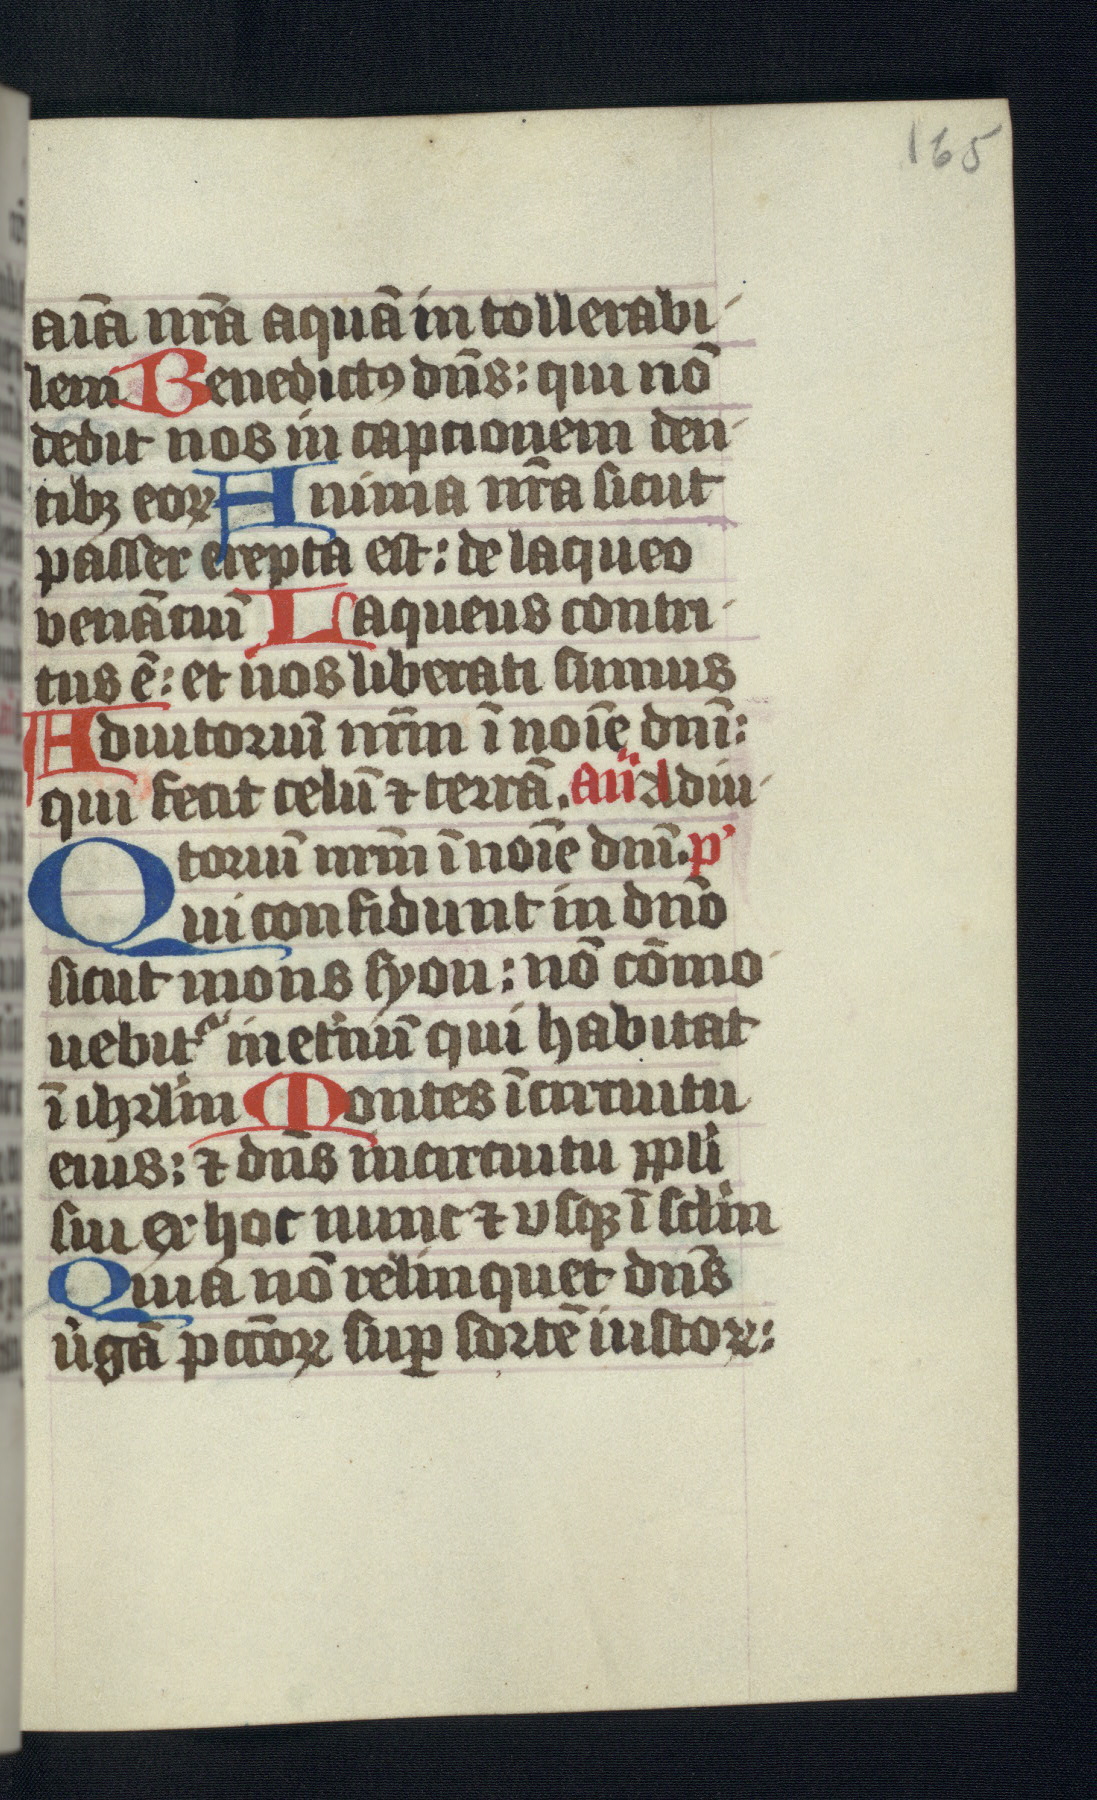 165
aīa nr̄a aquā in tollerabi-
lem Benedictꝯ dn̄s: qui nō
dedit nos in captionem den-
tibꝫ eoꝝ Anima nr̄a sicut
passer erepta est: de laqueo
venātiū Laqueus contri-
tus ē: et nos liberati sumus
Adiutoriū nr̄m ī noīe dnī:
qui fecit celū ⁊ terrā. an̄ Adiu-
toriū nr̄m ī noīe dnī. p̄
Qui confidunt in dnō
sicut mons syon: nō cōmo-
uebit᷑ inet'nū qui habitat
ī ihrlm̄ Montes ī circuitu
eius: ⁊ dn̄s in circuitu ppli
sui ex hoc nunc ⁊ vsqꝫ ī sclm̄
Quia nō relinquet dn̄s
v̓gā pctōꝝ suꝑ sortē iustoꝝ: